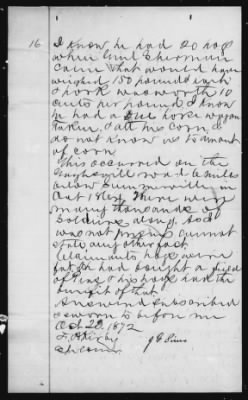 16 I know he had 20 hogs
when Genl Sherman
came that would have
weighed 150 pounds each
& pork was worth 10
cents per pound. I know
he had a one horse wagon
taken, & all his corn, I
do not know as to amount
of corn.
This occurred on the
road 6 miles
below Summerville in
Oct 1864. There were
many thousands of
Soldiers along, and
was not present cannot
state any other fact.
Claimants hogs were
fat, he had bought a field
of Peas & his hogs had the
benefit of that
Answered Subscribed
& sworn to before me
Oct 28, 1872